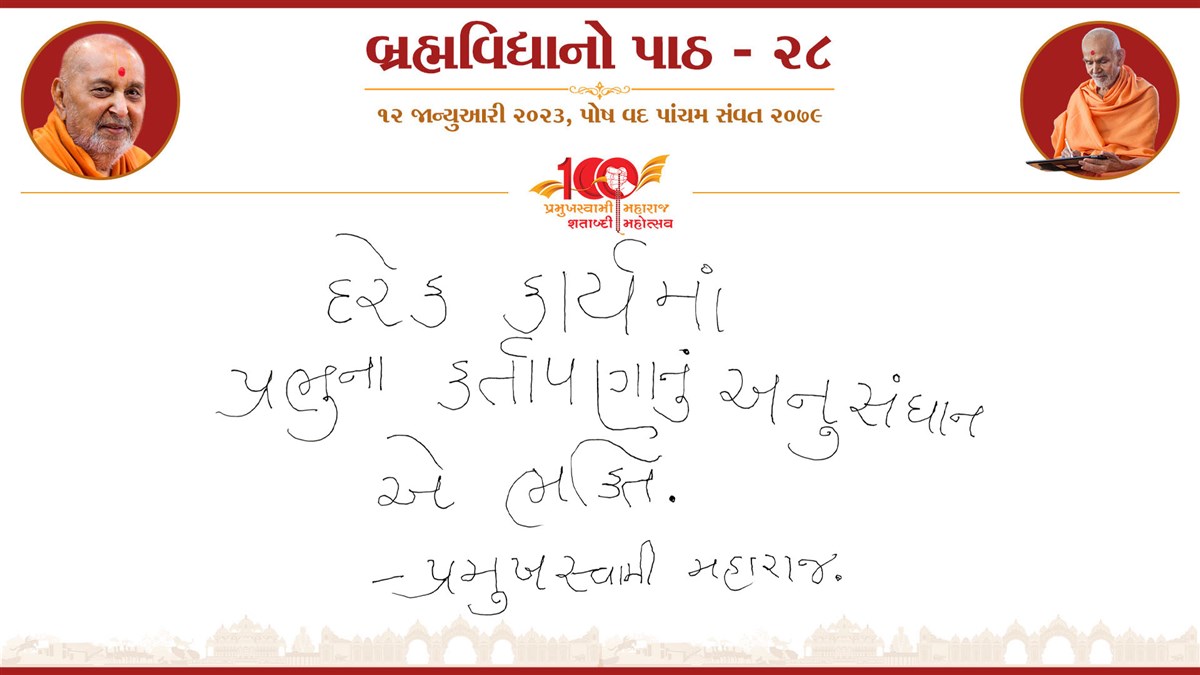 બ્રહ્મવિદ્યાનો પાઠ - ૨૮
૧૨ જાન્યુઆરી ૨૦૨૩, પોષ વદ પાંચમ સંવત ૨૦૭૯
100
પ્રમુખસ્વામી મહારાજ
શતાબ્દી મહોત્સવ
દરેક કાર્યમાં
પ્રભુના કર્તાપણાનું અનુસંધાન
એ ભક્તિ.
- પ્રમુખસ્વામી મહારાજ.